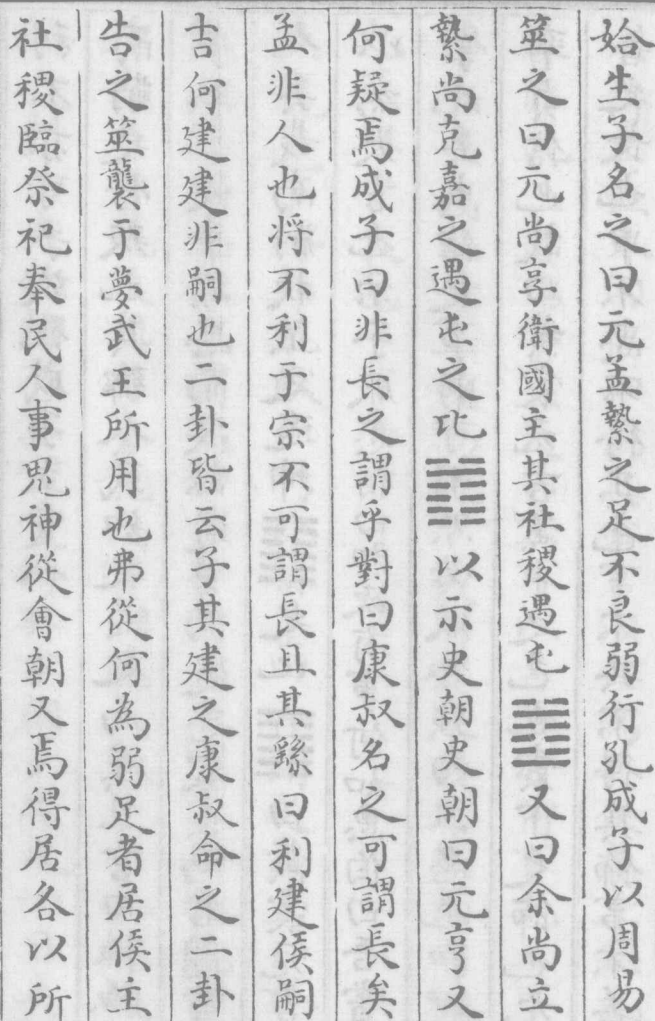 始生子名之曰元孟縶之足不良弱行孔成子以周易
筮之曰元尚享衛國主其社稷遇屯䷂又曰余尚立
縶尚克嘉之遇屯之比䷇以示史朝史朝曰元亨又
何疑焉成子曰非長之謂乎對曰康叔名之可謂長矣
孟非人也将不利于宗不可謂長且其繇曰利建侯嗣
吉何建建非嗣也二卦皆云子其建之康叔命之二卦
告之筮襲于夢武王所用也弗從何為弱足者居侯主
社稷臨祭祀奉民人事鬼神從會朝又焉得居各以所